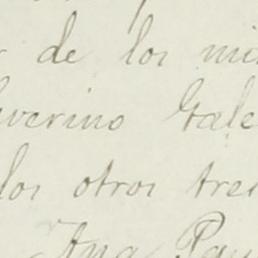 de los
verino Gale
los otros tres
Ana Pau